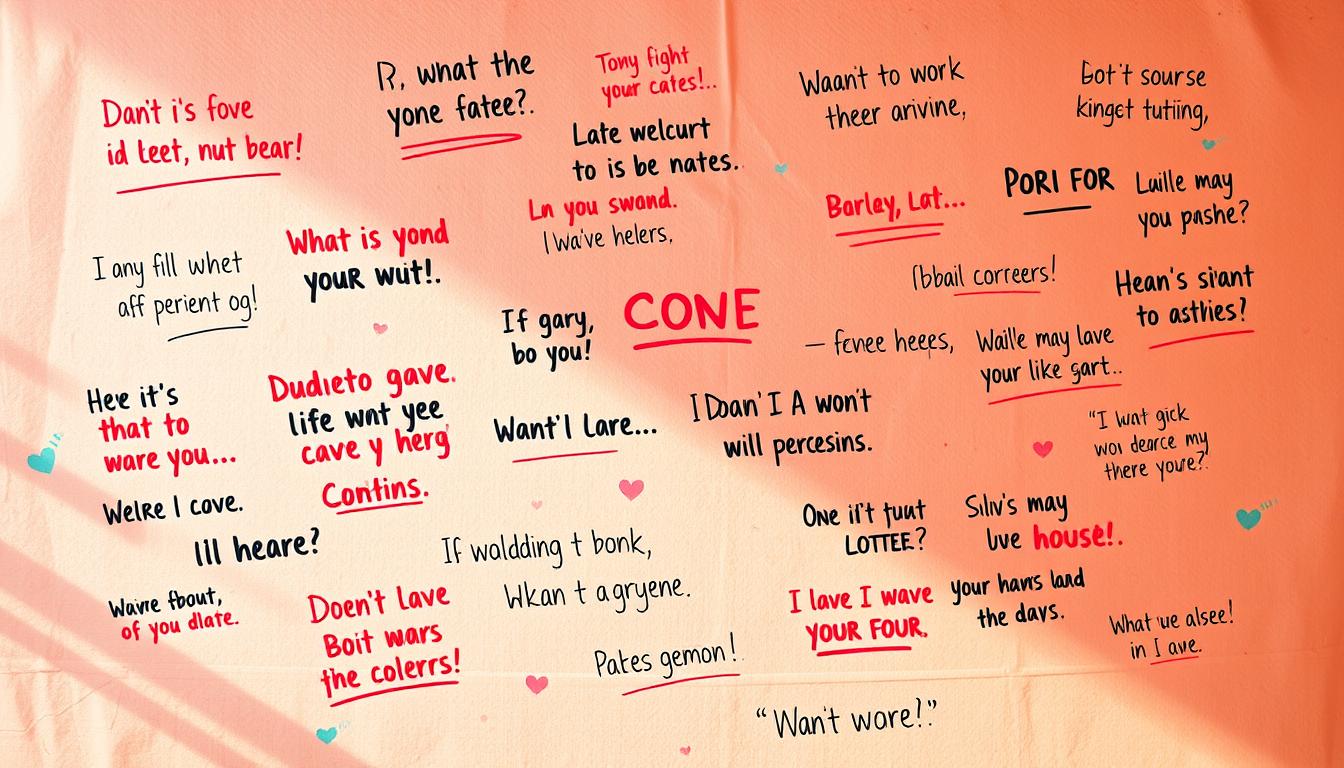 Dan't i's fove
id leet, nut bear!
R, what the
yone fatee?.
Tony fight
your cates!..
Late welcurt
to is be nates.
Ln you swand.
I wa've helers,
Waan't to work
theer arivine,
Got't sourse
kinget tutiing,
Barley, Lat...
PORI FOR
Luille may
you pashe?
I any fill whet
aff perient og!
What is yond
youR wut!.
Ibbail correers!
Hean's siant
to astries?
If gary,
bo you!
CONE
– fenee heeps,
Waille may lave
your like gart..
Hee it's
that to
ware you...
Dudieto gave.
life wnt yee
cave y herg
Contins.
Want'l Lare...
I Doan' I A won't
will percesins.
"I wat gick
woi dearce my
there youre?.
Welre I cove.
Ill heare?
If waldding t bonk,
Wkan t agryene.
One if't fuut
LOTTEE?
Siliv's may
lve house!.
Waivre fbout,
of you dlate.
Doen't Lave
Boit wars
the colerrs!
Pates gemon!.
I lave I wave
YOUR FOUR.
your havrs land
the davs.
What 'ue alsee!
in I ave.
"Wan't wore!."